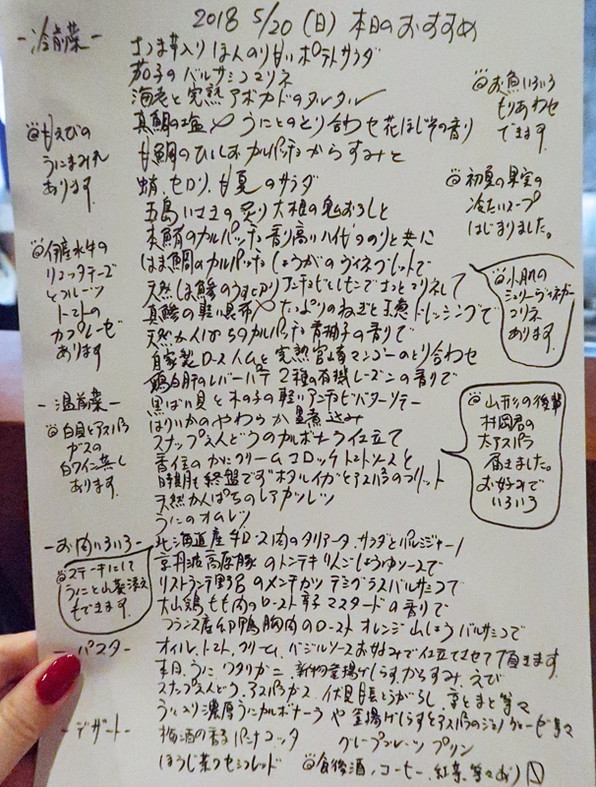 2018 5/20 (日) 本日のおすすめ
-冷前菜-
さつま芋入り ほんのり甘いポテトサラダ
茄子のバルサミコマリネ
海老と完熟アボカドのタルタル
真鯛の塩〆 うにとのとり合わせ 花ほじその香り
甘鯛のひしおカルパッチョ からすみと
蛸、セロリ、甘夏のサラダ
五島いさきの炙り 大根の鬼おろしと
本鮪のカルパッチョ 香り高い八代ののりと共に
はま鯛のカルパッチョ しょうがのヴィネグレットで
天然しま鯵のうす切り アンチョビとレモンでさっとマリネして
真鯵の軽い昆布〆 たっぷりのねぎと玉葱ドレッシングで
天然かんぱちのカルパッチョ 青柚子の香りで
自家製ロースハムと完熟宮崎マンゴーのとり合わせ
鶏白肝のレバーパテ 2種の有機レーズンの香りで
◎お魚いろいろ
もりあわせ
できます
◎甘えびの
うにまみれ
あります
◎初夏の果実の
冷たいスープ
はじまりました。
◎伊産水牛の
リコッタチーズ
とフルーツ
トマトの
カプレーゼ
あります
◎小肌の
シェリーヴィネガー
マリネ
あります。
-温前菜-
黒ばい貝ときの子の軽いアンチョビバターソテー
はりいかのやわらか墨煮込み
スナップえんどうのカルボナーラ仕立て
香住のかにクリームコロッケ トマトソースと
時期も終盤です ホタルイカとアスパラのフリット
天然かんぱちのレアカツレツ
うにのオムレツ
◎白貝とアスパラ
ガスの
白ワイン蒸し
あります。
◎山形の後輩
村岡君の
太アスパラ
届きました。
お好みで
いろいろ
-お肉いろいろ-
北海道産牛ロース肉のタリアータ、サラダとパルミジャーノ
京丹波高原豚のトンテキ りんごしょうゆソースで
リストランテ野呂のメンチカツ デミグラスバルサミコで
大山鶏もも肉のロースト 粒マスタードの香りで
フランス産 鴨胸肉のロースト オレンジ山しょうバルサミコで
◎ステーキにして
うにと山菜添え
もできます
-パスタ-
オイル、トマト、クリーム、バジルソース お好みで仕立てさせて頂きます
本日、うに、ワタリガニ、新物釜揚げしらす、からすみ、えび
スナップえんどう、アスパラガス、伏見甘長とうがらし、京とまと等々
うに入り濃厚うにカルボナーラや釜揚げしらすとアスパラのジェノヴェーゼ等々
-デザート-
梅酒の香るパンナコッタ グレープフルーツプリン
ほうじ茶のセミフレッド ◎食後酒、コーヒー、紅茶、等々あり